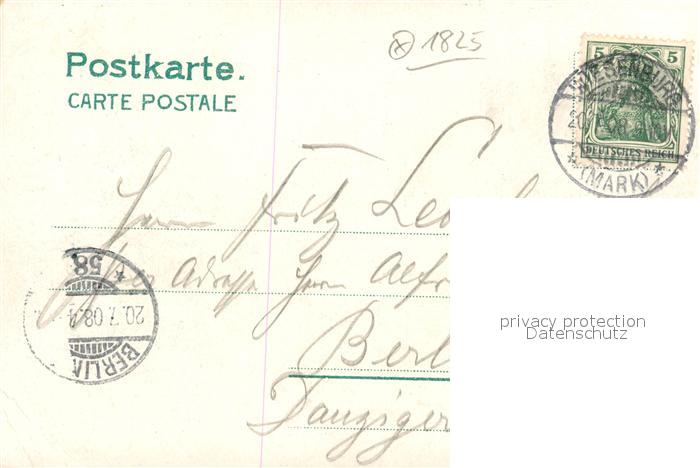 1825
Postkarte.
CARTE POSTALE
5 5
DEUTSCHES REICH
WIESENBURG
(MARK)
Herrn Fritz
Adresse Herrn
Danziger
BERLIN
20.7.08.
58
privacy protection
Datenschutz